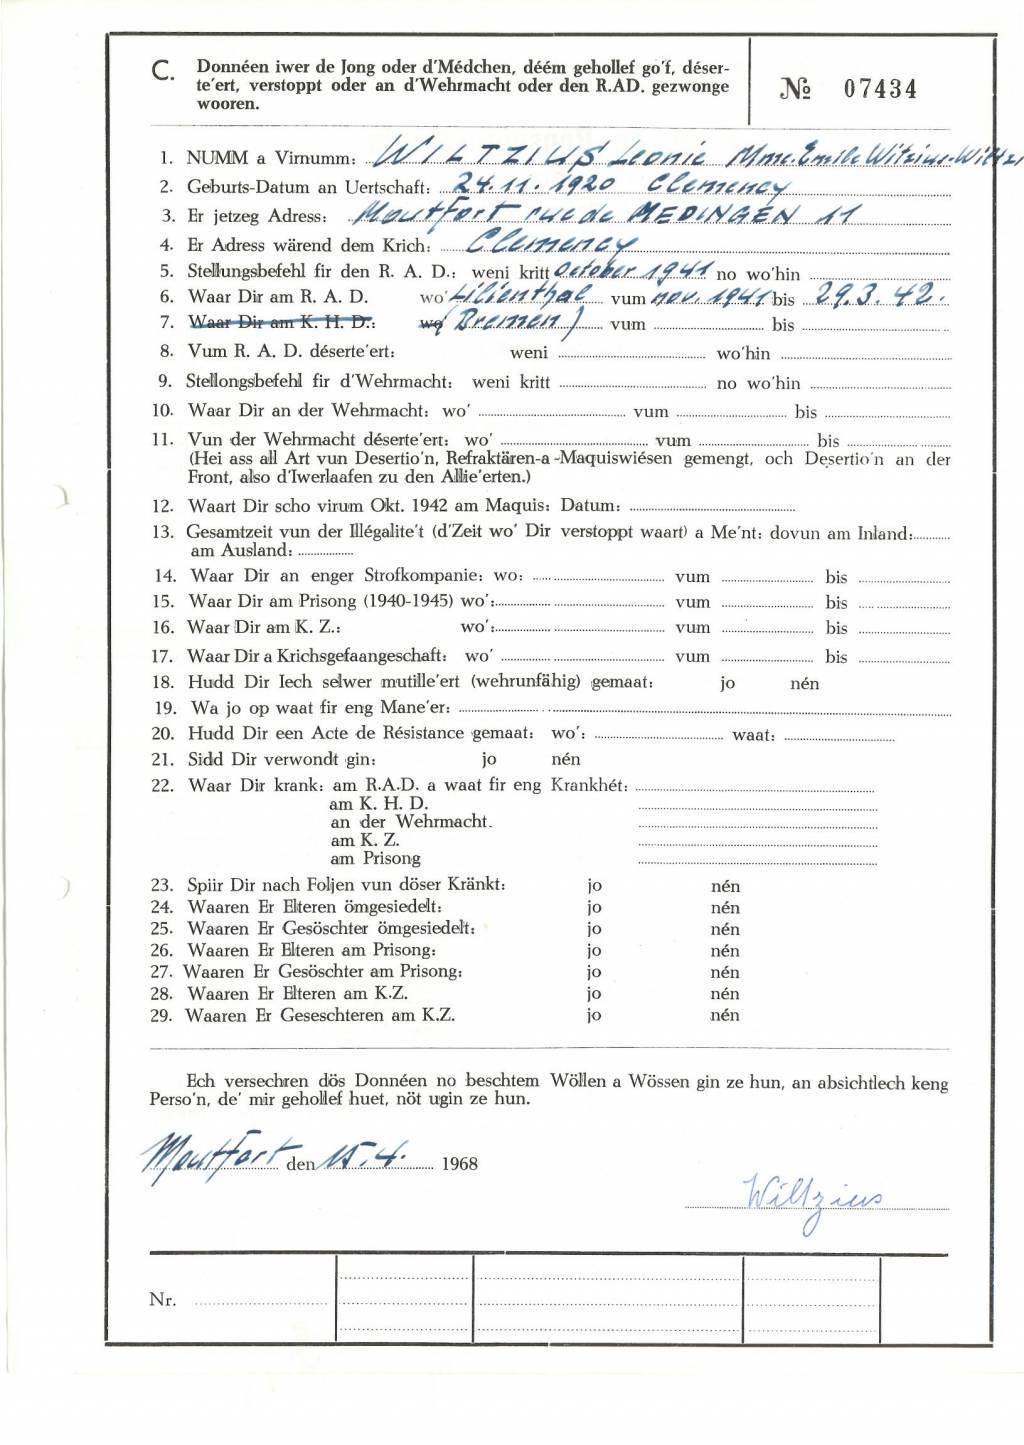 C. Donnéen iwer de Jong oder d'Médchen, déém gehollef go'f, déser-
te'ert, verstoppt oder an d'Wehrmacht oder den R.AD. gezwonge
wooren.
№ 07434
1. NUMM a Virnumm: WILTZIUS Leonie Mme. Emile Witzius-Wiltzi
2. Geburts-Datum an Uertschaft: 24.11.1920 Clemency
3. Er jetzeg Adress: Moutfort rue de MEDINGEN 11
4. Er Adress wärend dem Krich: Clemency
5. Stellungsbefehl fir den R. A. D.: weni kritt October 1941 no wo'hin
6. Waar Dir am R. A. D. wo' Lilienthal vum nov. 1941 bis 29.3.42.
7. Waar Dir am K. H. D.: wo' (Bremen) vum bis
8. Vum R. A. D. déserte'ert: weni wo'hin
9. Stellongsbefehl fir d'Wehrmacht: weni kritt no wo'hin
10. Waar Dir an der Wehrmacht: wo' vum bis
11. Vun der Wehrmacht déserte'ert: wo' vum bis
(Hei ass all Art vun Desertio'n, Refraktären-a-Maquiswiésen gemengt, och Desertio'n an der
Front, also d'Iwerlaafen zu den Allie'erten.)
12. Waart Dir scho virum Okt. 1942 am Maquis: Datum:
13. Gesamtzeit vun der Illégalite't (d'Zeit wo' Dir verstoppt waart) a Me'nt: dovun am Inland:
am Ausland:
14. Waar Dir an enger Strofkompanie: wo: vum bis
15. Waar Dir am Prisong (1940-1945) wo': vum bis
16. Waar Dir am K. Z.: wo': vum bis
17. Waar Dir a Krichsgefaangeschaft: wo' vum bis
18. Hudd Dir Iech selwer mutille'ert (wehrunfähig) gemaat: jo nén
19. Wa jo op waat fir eng Mane'er:
20. Hudd Dir een Acte de Résistance gemaat: wo': waat:
21. Sidd Dir verwondt gin: jo nén
22. Waar Dir krank: am R.A.D. a waat fir eng Krankhét:
am K. H. D.
an der Wehrmacht.
am K. Z.
am Prisong
23. Spiir Dir nach Foljen vun döser Kränkt: jo nén
24. Waaren Er Elteren ömgesiedelt: jo nén
25. Waaren Er Gesöschter ömgesiedelt: jo nén
26. Waaren Er Elteren am Prisong: jo nén
27. Waaren Er Gesöschter am Prisong: jo nén
28. Waaren Er Elteren am K.Z. jo nén
29. Waaren Er Geseschteren am K.Z. jo nén
Ech versechren dös Donnéen no beschtem Wöllen a Wössen gin ze hun, an absichtlech keng
Perso'n, de' mir gehollef huet, nöt ugin ze hun.
Moutfort den 15.4. 1968
Wiltzius
Nr.